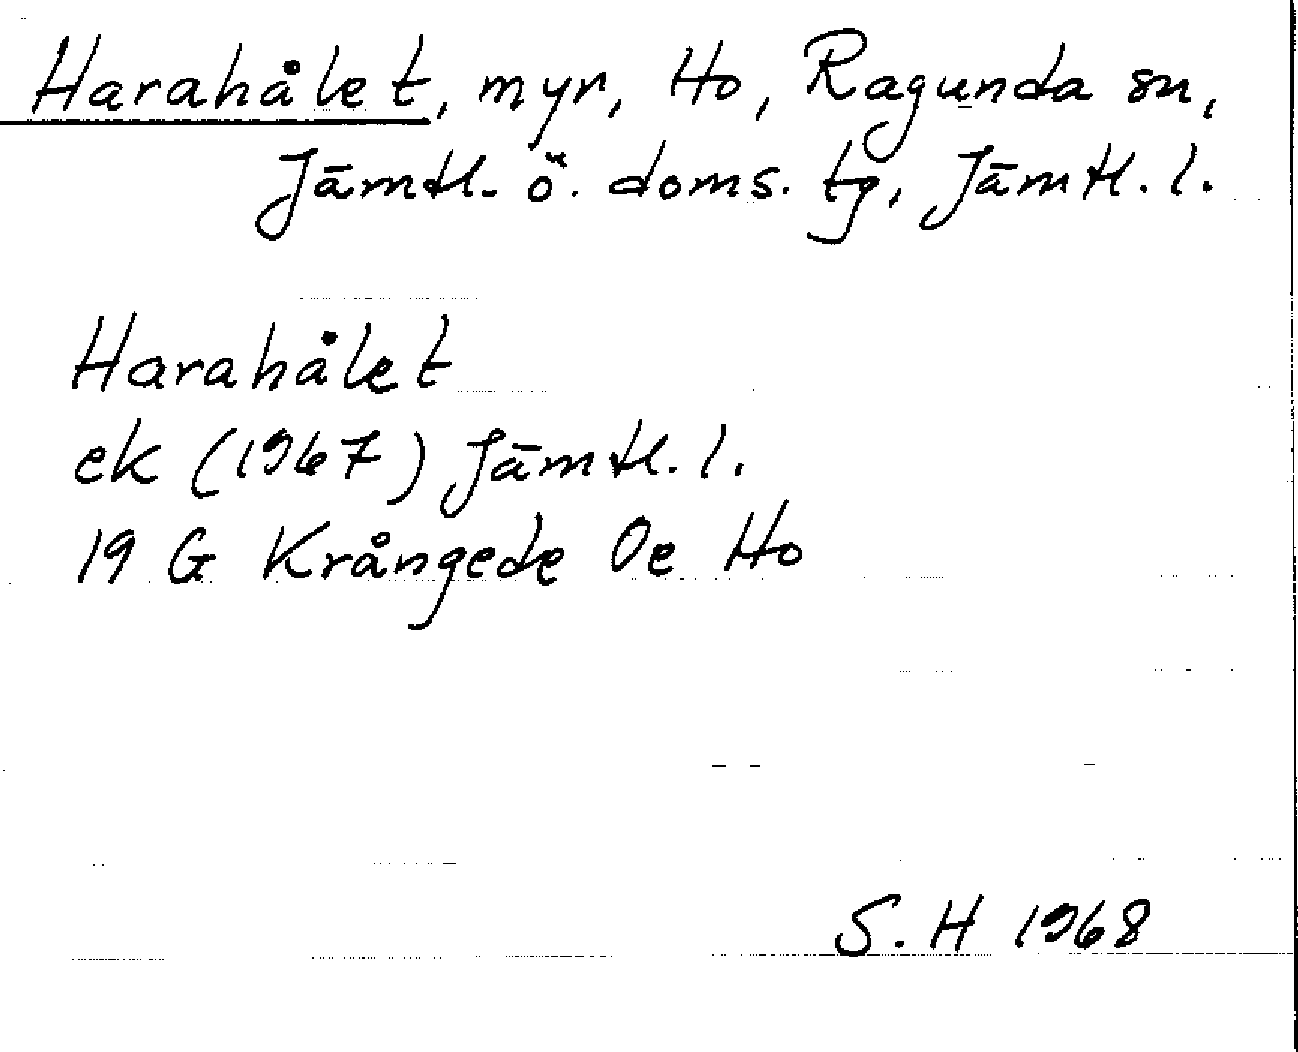 Harahålet, myr, Ho, Ragunda sn,
Jämtl. ö. doms. tg, Jämtl. l.
Harahålet
ek (1967) Jämtl. l.
19 G Krångede Oe Ho
S. H 1968